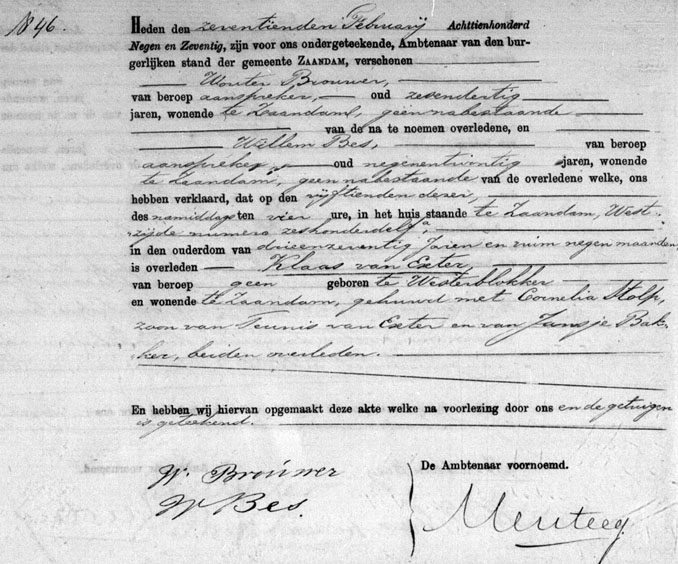 N 46.
Heden den zeventienden Februarij Achttienhonderd
Negen en Zeventig, zijn voor ons ondergeteekende, Ambtenaar van den bur-
gerlijken stand der gemeente ZAANDAM, verschenen
Wouter Brouwer,
van beroep aanspreker, oud zesendertig
jaren, wonende te Zaandam, geen nabestaande
van de na te noemen overledene, en
Willem Bes, van beroep
aanspreker, oud negenentwintig jaren, wonende
te Zaandam, geen nabestaande van de overledene welke, ons
hebben verklaard, dat op den vijftienden dezer,
des namiddags ten vier ure, in het huis staande te Zaandam, West-
zijde numero zeshonderdelf a
in den ouderdom van drieenzeventig Jaren en ruim negen maanden
is overleden Klaas van Exter
van beroep geen geboren te Westerblokker
en wonende te Zaandam, gehuwd met Cornelia Stolp,
zoon van Teunis van Exter en van Jansje Bak-
ker, beiden overleden.
En hebben wij hiervan opgemaakt deze akte welke na voorlezing door ons en de getuigen
is geteekend.
W. Brouwer
W Bes.
De Ambtenaar voornoemd.